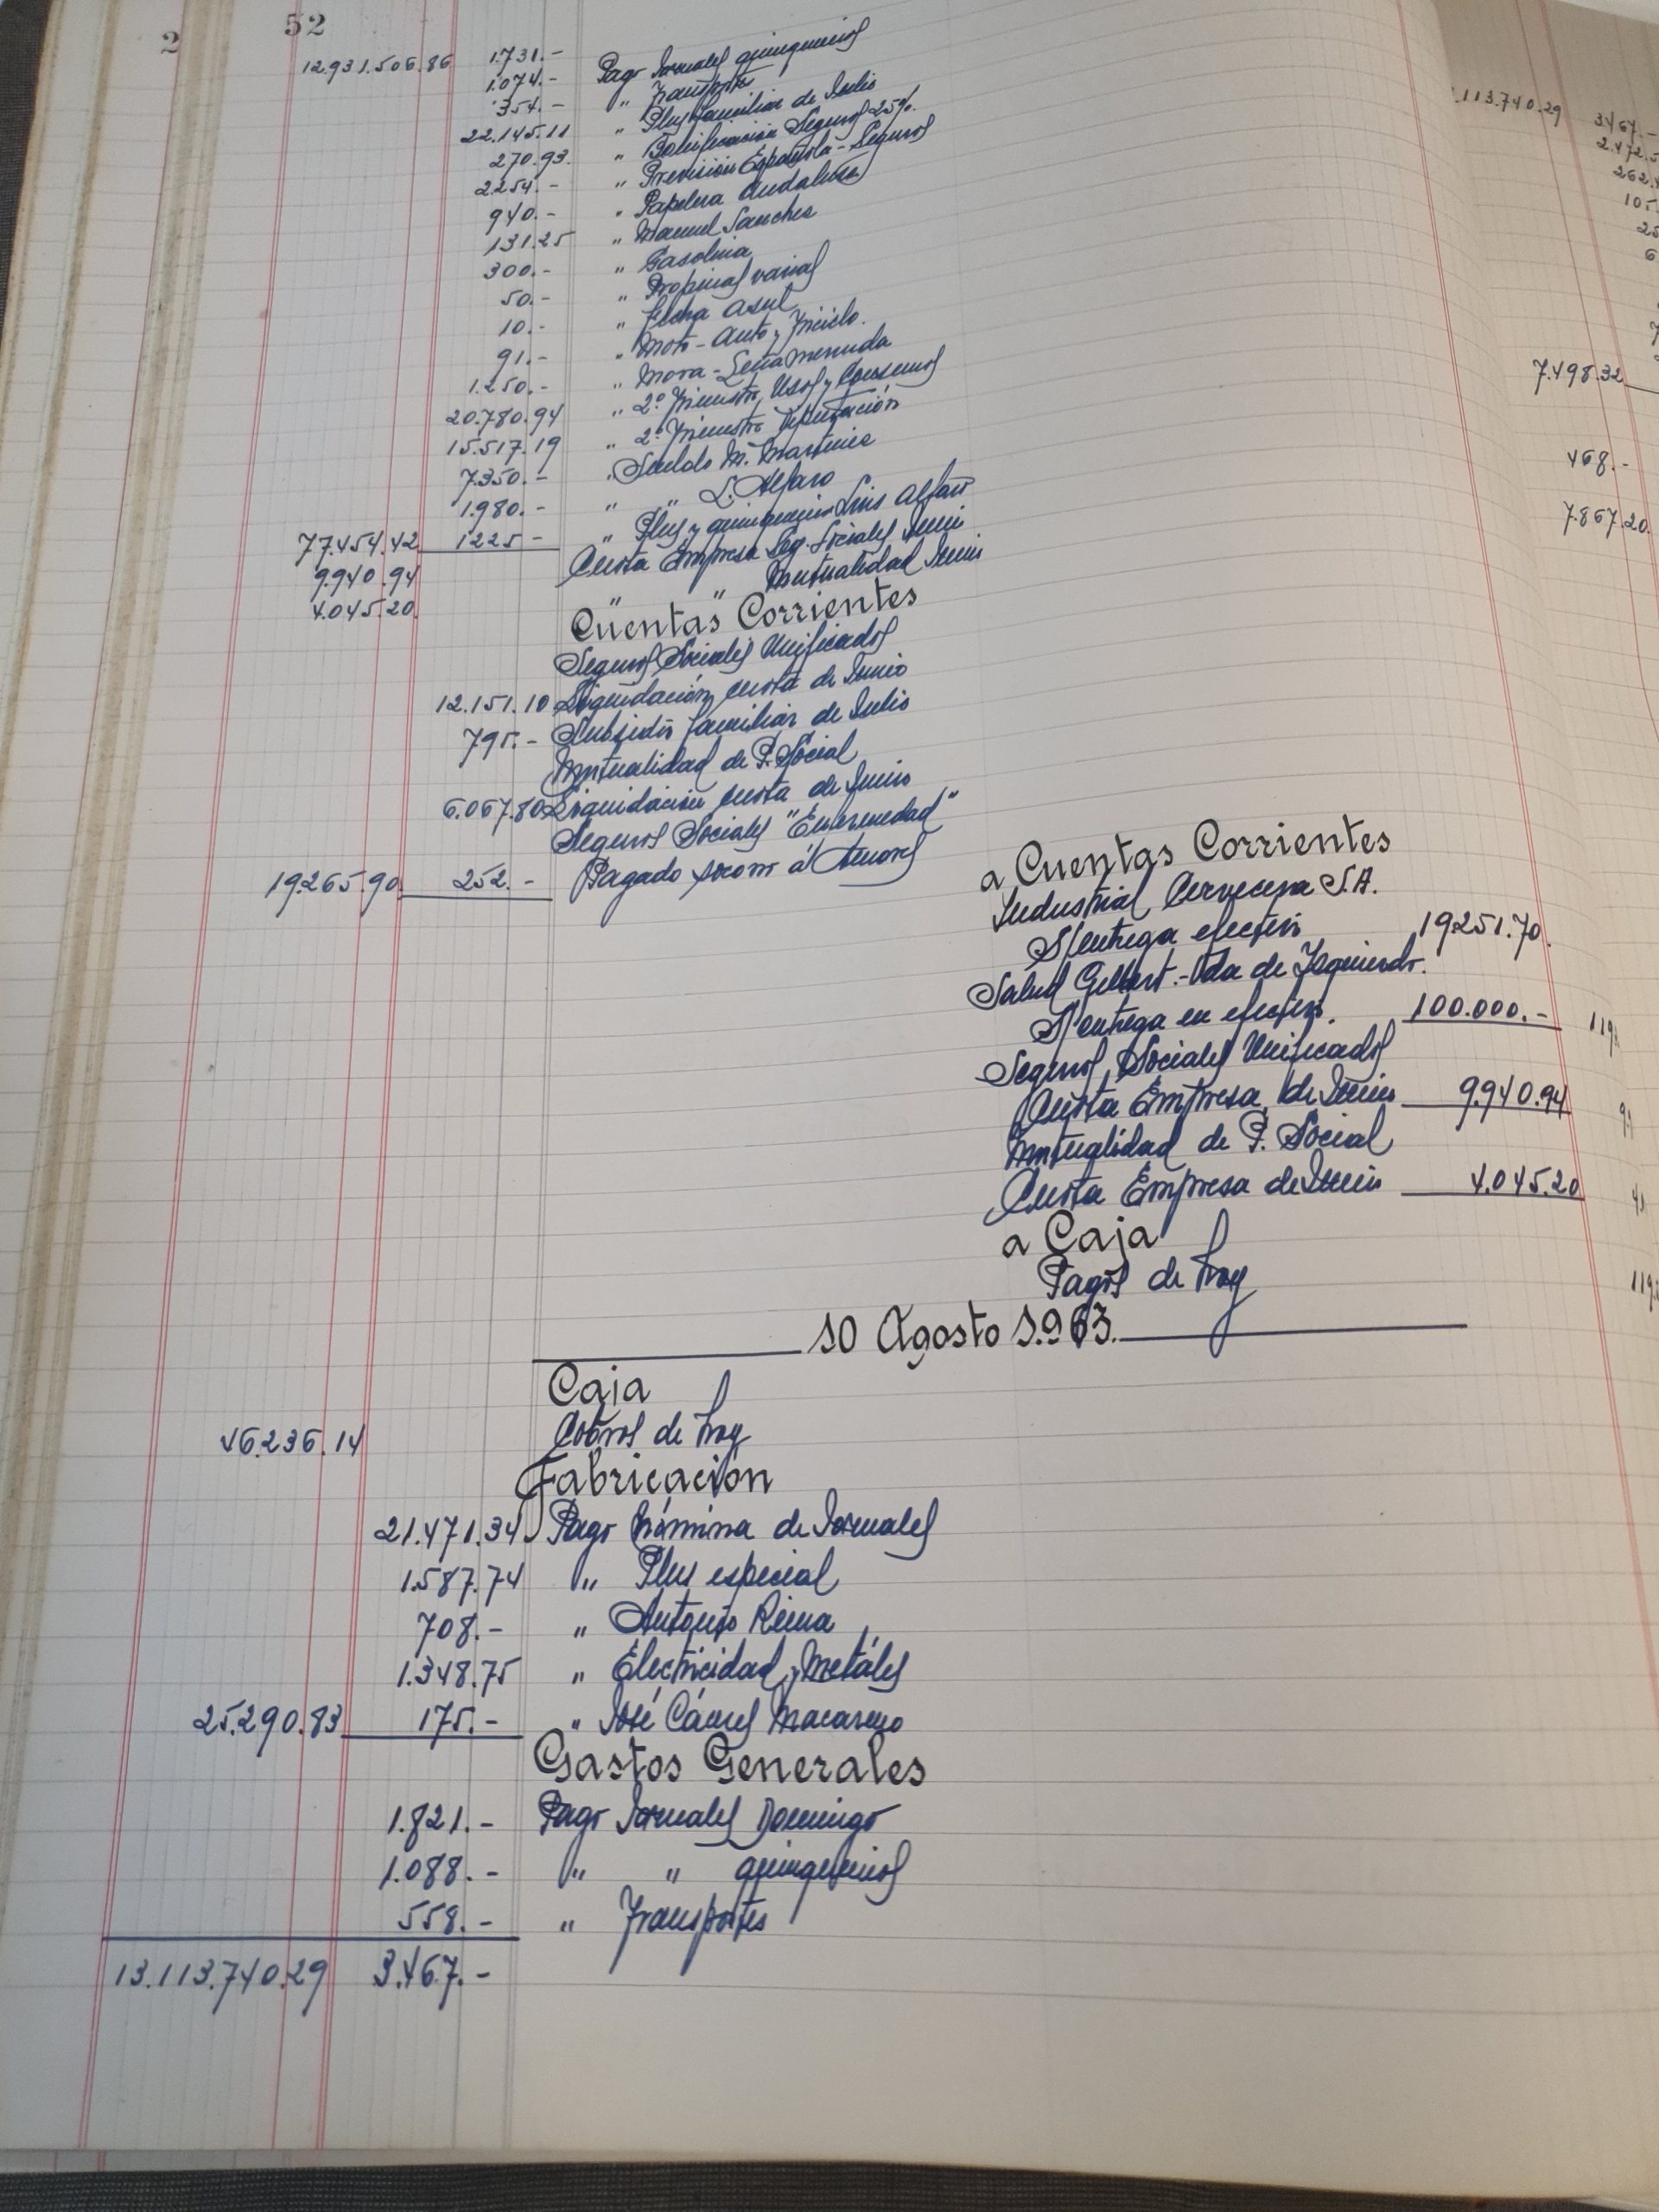 2 52
12.931.506.86 1.731.- Pago Jornales quinquenios
1.074.- " Transportes
354.- " Plus familiar de Julio
22.145.11 " Bonificación Seguros 25%
270.93. " Previsión Española - Seguros
2.254.- " Papelera Andaluza
940.- " Manuel Sanchez
131.25 " Gasolina
300.- " Propinas varias
50.- " flecha Azul
10.- " Moto-Auto y Triciclo.
91.- " Mora - Leña menuda
1.250.- " 2º Trimestre, Usos y Consumos
20.780.94 " 2º Trimestre Diputación
15.517.19 " Sueldo M. Martinez
7.350.- " " L. Alfaro
1.980.- " Plus y quinquenio Luis Alfaro
77.454.42 1225.- Cuota Empresa Seg. Sociales Junio
9.940.94 " " Mutualidad Junio
4.045.20
Cuentas Corrientes
Seguros Sociales Unificados
12.151.10 Liquidación cuota de Junio
795.- Subsidio familiar de Julio
Mutualidad de P. Social
6.067.80 Liquidación cuota de Junio
Seguros Sociales "Enfermedad"
19.265.90 252.- Pagado á
a Cuentas Corrientes
Industrial Cervecera S.A.
S/entrega efectivo 19.251.70.
Salud Gilbert.-Vda de Izquierdo.
S/ entrega en efectivo. 100.000.-
Seguros Sociales Unificados
Cuota Empresa de Junio 9.940.94
Mutualidad de P. Social
Cuota Empresa de Junio 4.045.20
a Caja
Pagos de hoy
10 Agosto 1.963.
Caja
46.236.14 Cobros de hoy
Fabricación
21.471.34 Pago Nómina de Jornales
1.587.74 " Plus especial
708.- " Antonio Reina
1.348.75 " Electricidad y Metáles
25.290.83 175.- " José Macareno
Gastos Generales
1.821.- Pago Jornales Domingo
1.088.- " " quinquenios
558.- " Transportes
13.113.740.29 3.467.-
.113.740.29 3467.-
2.472.5
262.
105.
25
6
7.498.32
468.-
7.867.20.
119.
9.9
4.0
119.